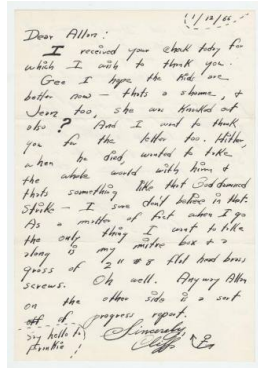 (1/12/66)
Dear Allan:
I received your check today for
which I wish to thank you.
Gee I hope the kids are
better now — thats a shame, &
Jerry too, she was knocked out
also? And I want to thank
you for the letter too. Hitler,
when he died, wanted to take
the whole world with him &
thats something like that God damned
strike — I sure dont believe in that.
As a matter of fact when I go
the only thing I want to take
along is my mitre box & a
gross of 2" #8 flat head brass
screws. Oh well. Anyway Allan
on the other side is a sort
of progress report.
Sincerely,
Cliff
say hello to